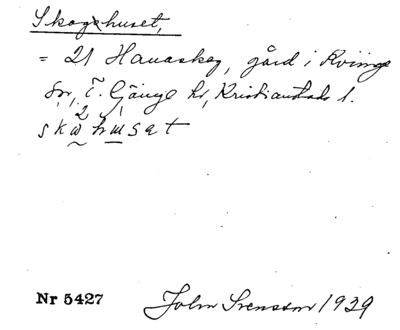 Skogshuset,
= 21 Hanaskog, gård i Kviinge
sn, Ö. Göinge hd, Kristianstads l.
Nr 5427 John Svensson 1929